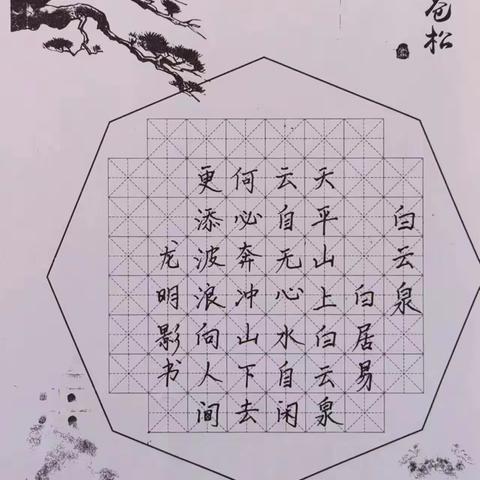 苍松
白云泉
白居易
天平山上白云泉
云自无心水自闲
何必奔冲山下去
更添波浪向人间
龙明影书